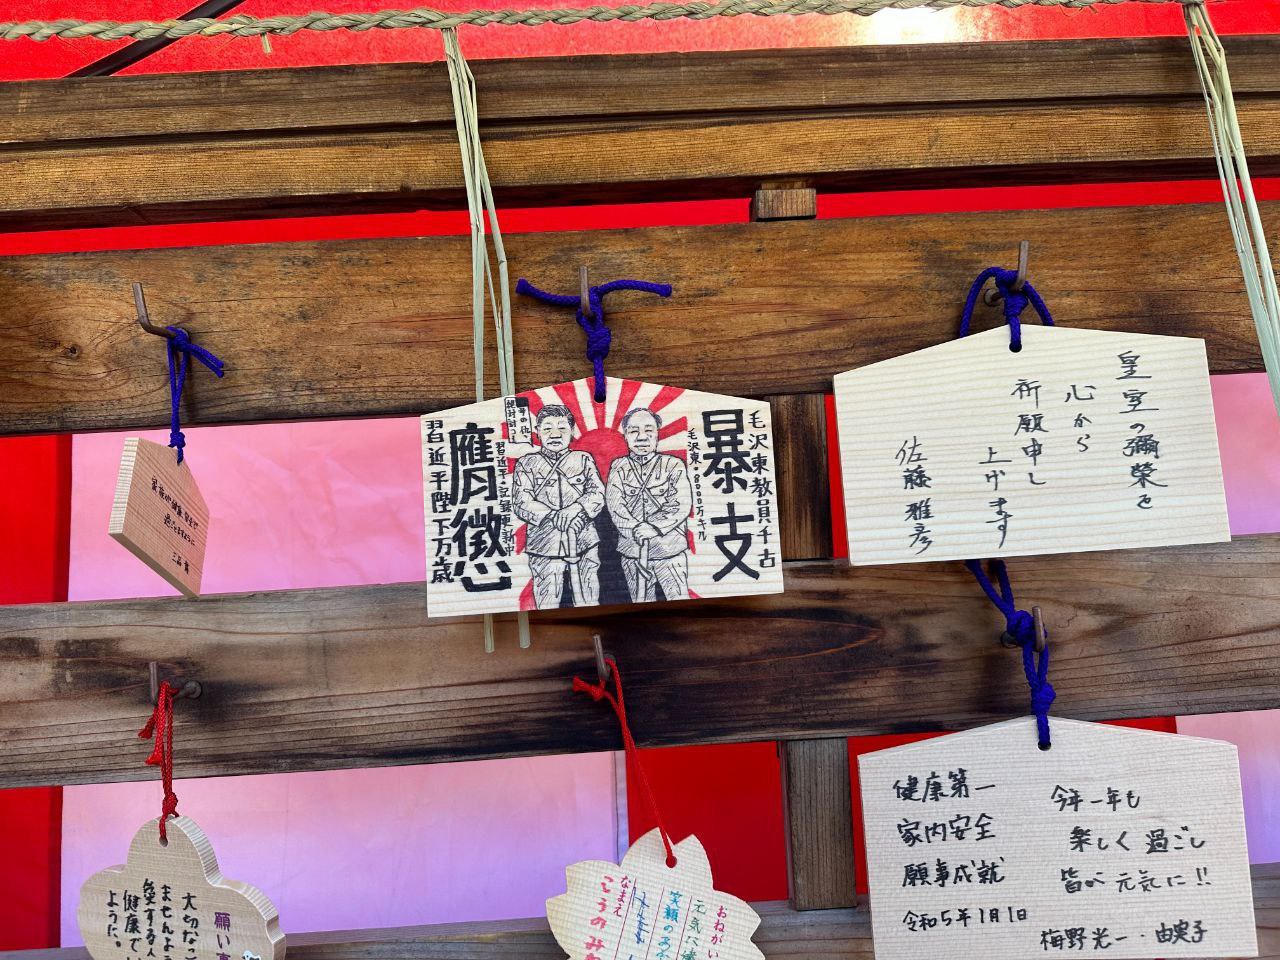 皇室の彌榮を
心から
祈願申し
上げます
佐藤雅彦
毛沢東教員千古
暴支
毛沢東・8000万キル
習近平・記録更新中
膺懲
習近平陛下万歳
三品
今年一年も
楽しく過ごし
皆が元気に!!
健康第一
家内安全
願事成就
令和5年1月1日
梅野光一・由実子
おねがい
元気に
笑顔の
なまえ
こうのみ
願い事
大切な
ませんよう
愛する人
健康で
ように。